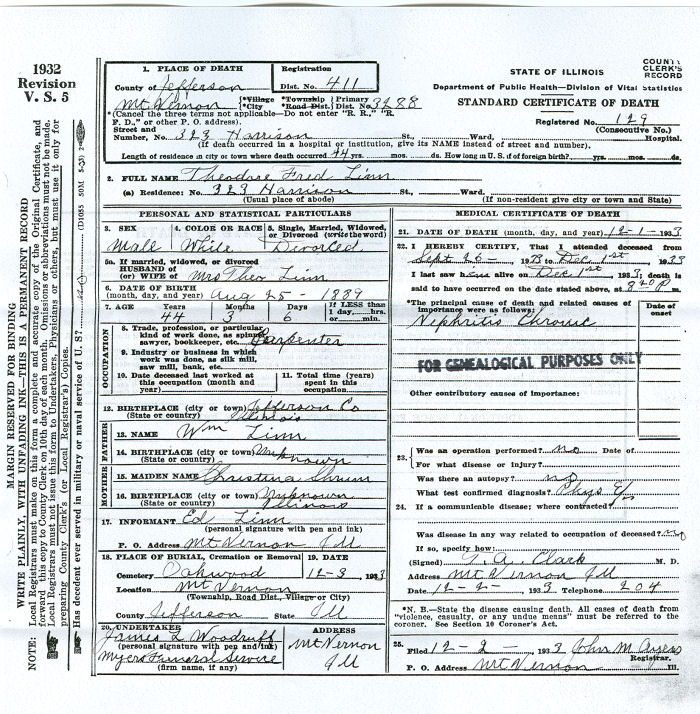 1932
Revision
V. S. 5
COUNTY
CLERK'S
RECORD
MARGIN RESERVED FOR BINDING
WRITE PLAINLY, WITH UNFADING INK—THIS IS A PERMANENT RECORD
NOTE: Local Registrars must make on this form a complete and accurate copy of the Original Certificate, and
forward this copy to County Clerk on 10th day of each month. Omissions or abbreviations must not be made.
Local Registrars must not issue this form to Undertakers, Physicians or others, but must use it only for
preparing County Clerk's (or Local Registrar's) Copies.
Has decedent ever served in military or naval service of U. S.?
1. PLACE OF DEATH
County of Jefferson
Registration
Dist. No. 411
Mt Vernon *Village *Township Primary
*City *Road Dist. Dist. No. 3288
*(Cancel the three terms not applicable—Do not enter "R. R.," "R.
F. D.," or other P. O. address).
Street and
Number, No. 323 Harrison St., Ward, Hospital.
(If death occurred in a hospital or institution, give its NAME instead of street and number).
Length of residence in city or town where death occurred 44 yrs. mos. ds. How long in U. S. if of foreign birth? yrs. mos. ds.
STATE OF ILLINOIS
Department of Public Health—Division of Vital Statistics
STANDARD CERTIFICATE OF DEATH
Registered No. 129
(Consecutive No.)
2. FULL NAME Theodore Fred Linn
(a) Residence: No. 323 Harrison St., Ward,
(Usual place of abode) (If non-resident give city or town and State)
PERSONAL AND STATISTICAL PARTICULARS
3. SEX
Male
4. COLOR OR RACE
White
5. Single, Married, Widowed,
or Divorced (write the word)
Divorced
5a. If married, widowed, or divorced
HUSBAND of
(or) WIFE of Mrs Theo Linn
6. DATE OF BIRTH
(month, day, and year) Aug 25 - 1889
7. AGE Years Months Days If LESS than
1 day, hrs.
or min.
44 3 6
OCCUPATION
8. Trade, profession, or particular
kind of work done, as spinner,
sawyer, bookkeeper, etc. Carpenter
9. Industry or business in which
work was done, as silk mill,
saw mill, bank, etc.
10. Date deceased last worked at
this occupation (month and
year)
11. Total time (years)
spent in this
occupation
12. BIRTHPLACE (city or town) Jefferson Co
(State or country) Illinois
FATHER
13. NAME Wm Linn
14. BIRTHPLACE (city or town) Unknown
(State or country)
MOTHER
15. MAIDEN NAME Christina Shrum
16. BIRTHPLACE (city or town) Unknown
(State or country) Illinois
17. INFORMANT Ed Linn
(personal signature with pen and ink)
P. O. Address Mt Vernon Ill
18. PLACE OF BURIAL, Cremation or Removal
Cemetery Oakwood
19. DATE
12-3, 1933
Location Mt Vernon
(Township, Road Dist., Village or City)
County Jefferson State Ill
20. UNDERTAKER
James G Woodruff
(personal signature with pen and ink)
Myers Funeral Service
(firm name, if any)
ADDRESS
Mt Vernon
Ill
MEDICAL CERTIFICATE OF DEATH
21. DATE OF DEATH (month, day, and year) 12-1-1933
22. I HEREBY CERTIFY, That I attended deceased from
Sept 26-, 1933 to Dec 1st, 1933
I last saw him alive on Dec 1st, 1933, death is
said to have occurred on the date stated above, at 8 20 P m.
*The principal cause of death and related causes of
importance were as follows:
Date of
onset
Nephritis Chronic
FOR GENEALOGICAL PURPOSES ONLY
Other contributory causes of importance:
23. Was an operation performed? no Date of
For what disease or injury?
Was there an autopsy? no
What test confirmed diagnosis? Phys Ex
24. If a communicable disease; where contracted?
Was disease in any way related to occupation of deceased? no
If so, specify how:
(Signed) Clark M. D.
Address Mt Vernon Ill
Date 12-2-, 1933 Telephone 204
*N. B.—State the disease causing death. All cases of death from
"violence, casualty, or any undue means" must be referred to the
coroner. See Section 10 Coroner's Act.
25. Filed 12-2-, 1933 John M Ayers
Registrar.
P. O. Address Mt Vernon Ill.